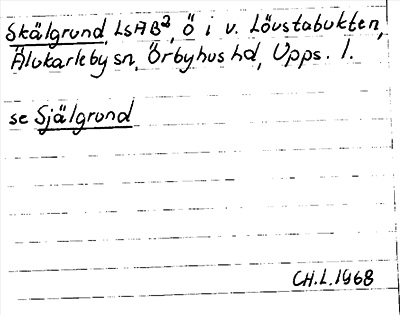 Skälgrund, LSÄB², ö i v. Lövstabukten,
Älvkarleby sn, Örbyhus hd, Upps. l.
se Själgrund
CH.L.1968